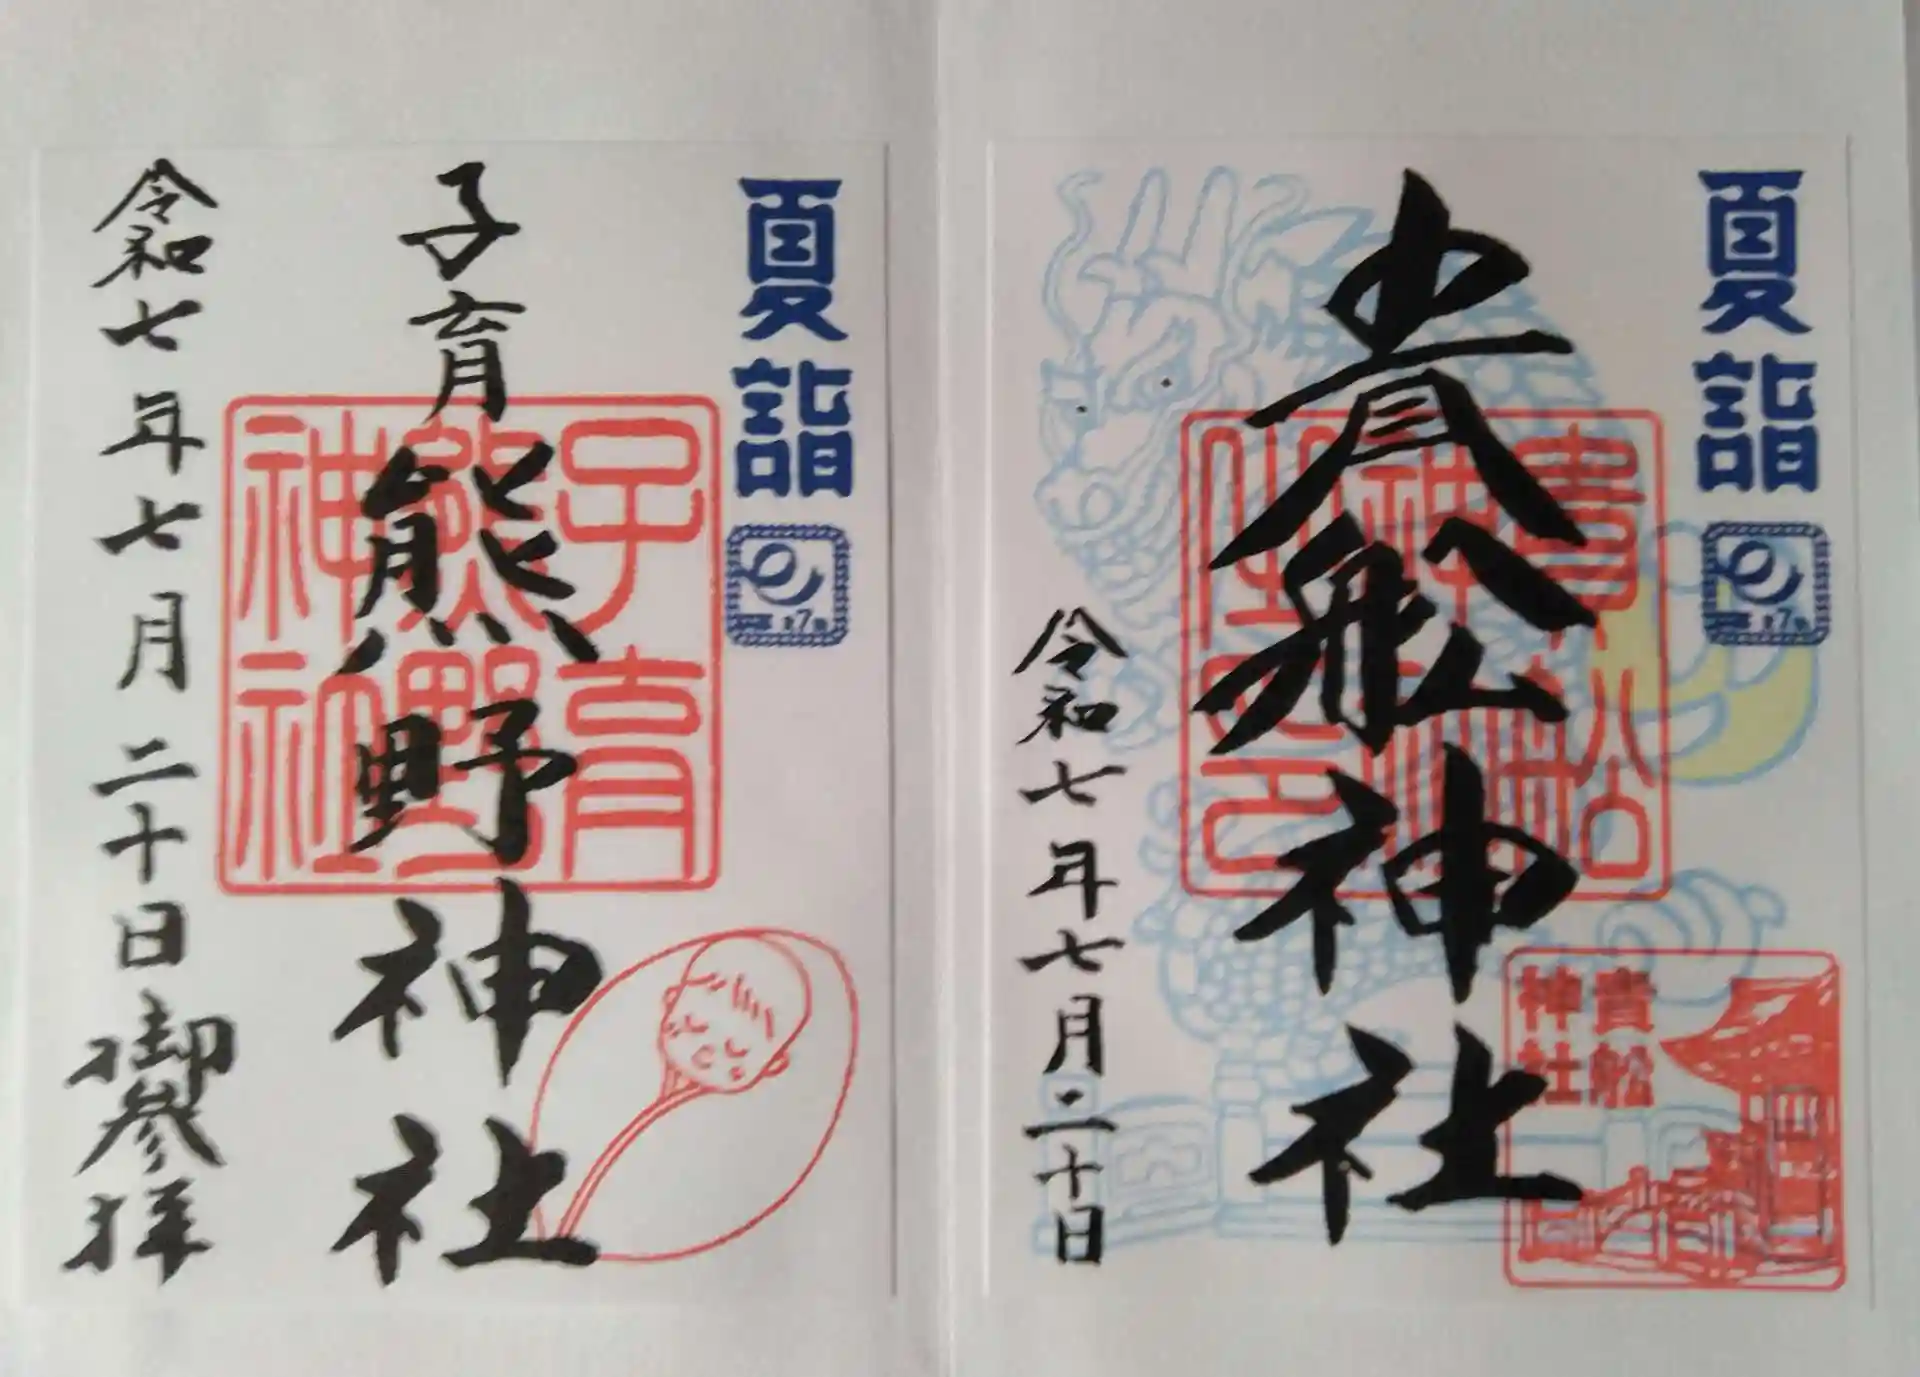 夏詣
貴船神社
貴船
神社
令和七年七月二十日
夏詣
子育熊野神社
子育
熊野
神社
令和七年七月二十日御參拝